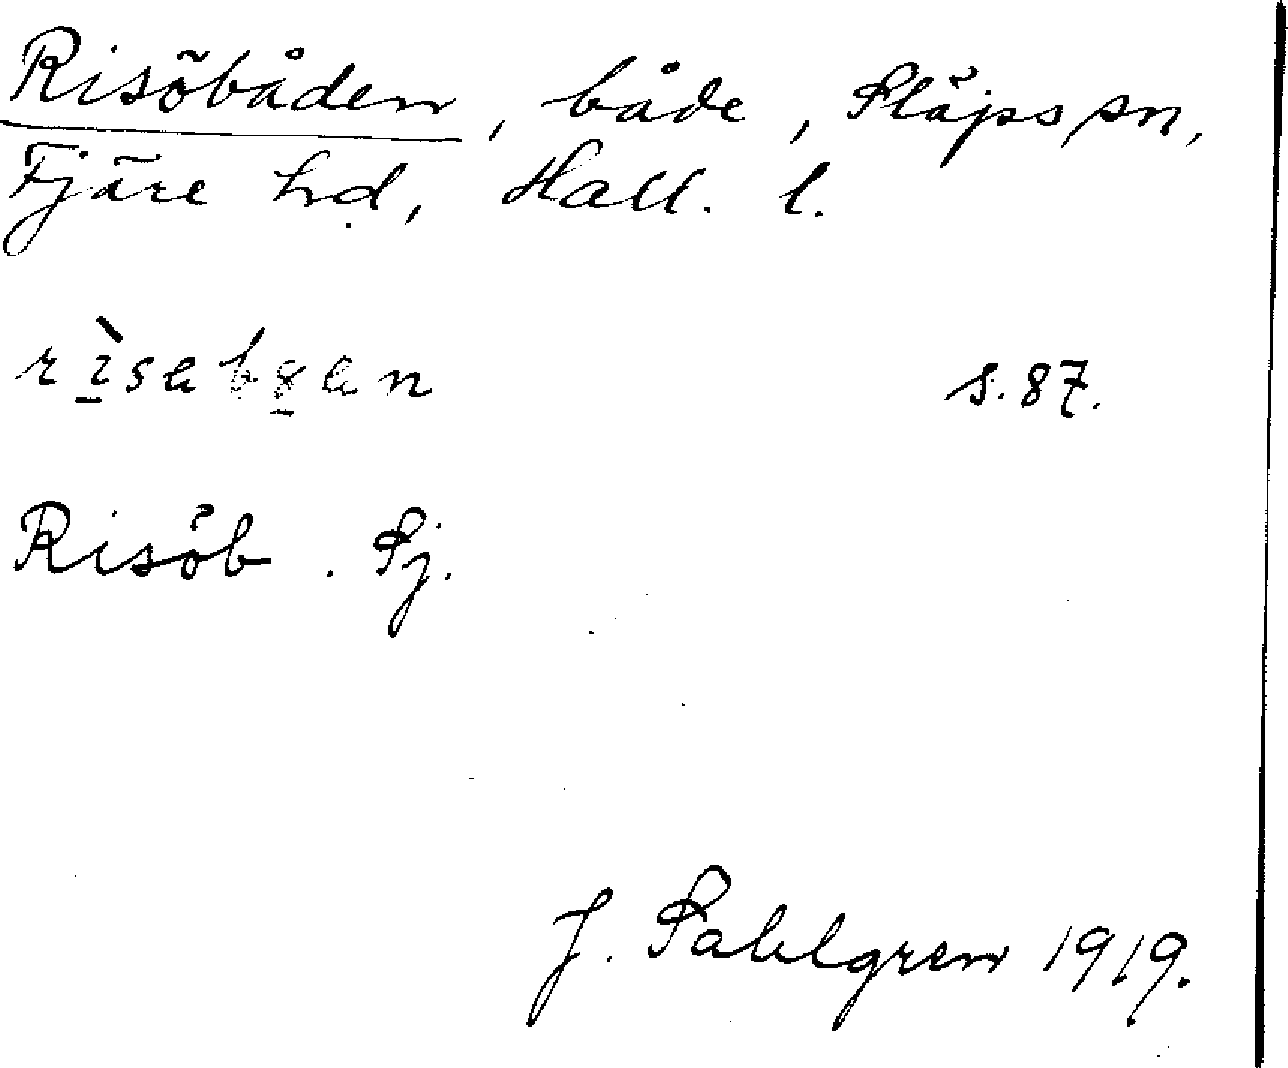 Risöbåden, både, Släps sn,
Fjäre hd, Hall. l.
rìsabɤan s. 87.
Risöb. Sj.
J. Sahlgren 1919.